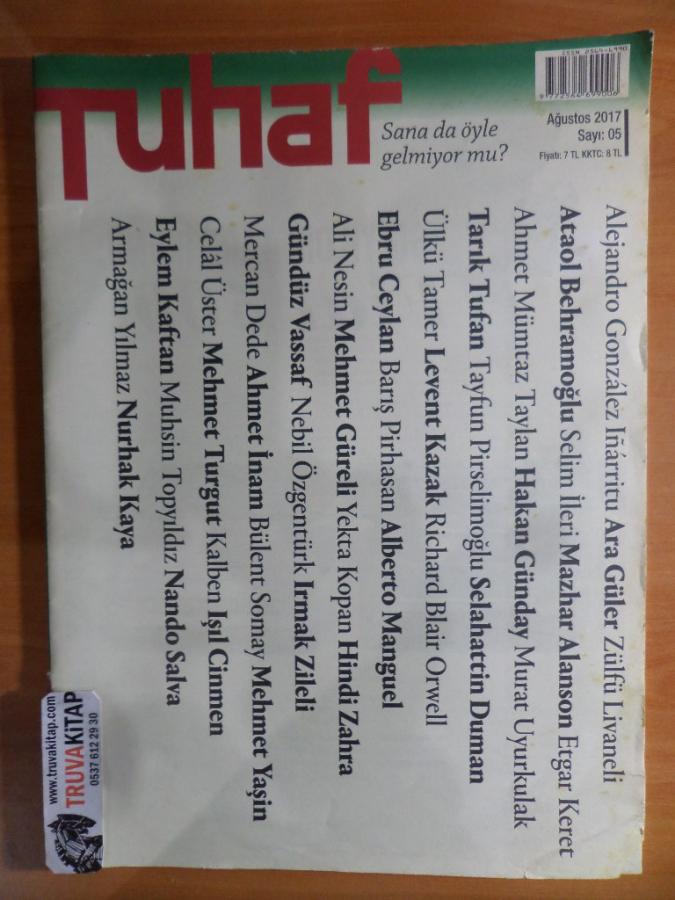 Tuhaf
Sana da öyle
gelmiyor mu?
ISSN 2564-6990
9 772564 699006
Ağustos 2017
Sayı: 05
Fiyatı: 7 TL KKTC: 8 TL
Alejandro González Iñárritu Ara Güler Zülfü Livaneli
Ataol Behramoğlu Selim İleri Mazhar Alanson Etgar Keret
Ahmet Mümtaz Taylan Hakan Günday Murat Uyurkulak
Tarık Tufan Tayfun Pirselimoğlu Selahattin Duman
Ülkü Tamer Levent Kazak Richard Blair Orwell
Ebru Ceylan Barış Pirhasan Alberto Manguel
Ali Nesin Mehmet Güreli Yekta Kopan Hindi Zahra
Gündüz Vassaf Nebil Özgentürk Irmak Zileli
Mercan Dede Ahmet İnam Bülent Somay Mehmet Yaşin
Celâl Üster Mehmet Turgut Kalben Işıl Cinmen
Eylem Kaftan Muhsin Topyıldız Nando Salva
Armağan Yılmaz Nurhak Kaya
0537 612 29 30
TRUVAKİTAP
www.truvakitap.com